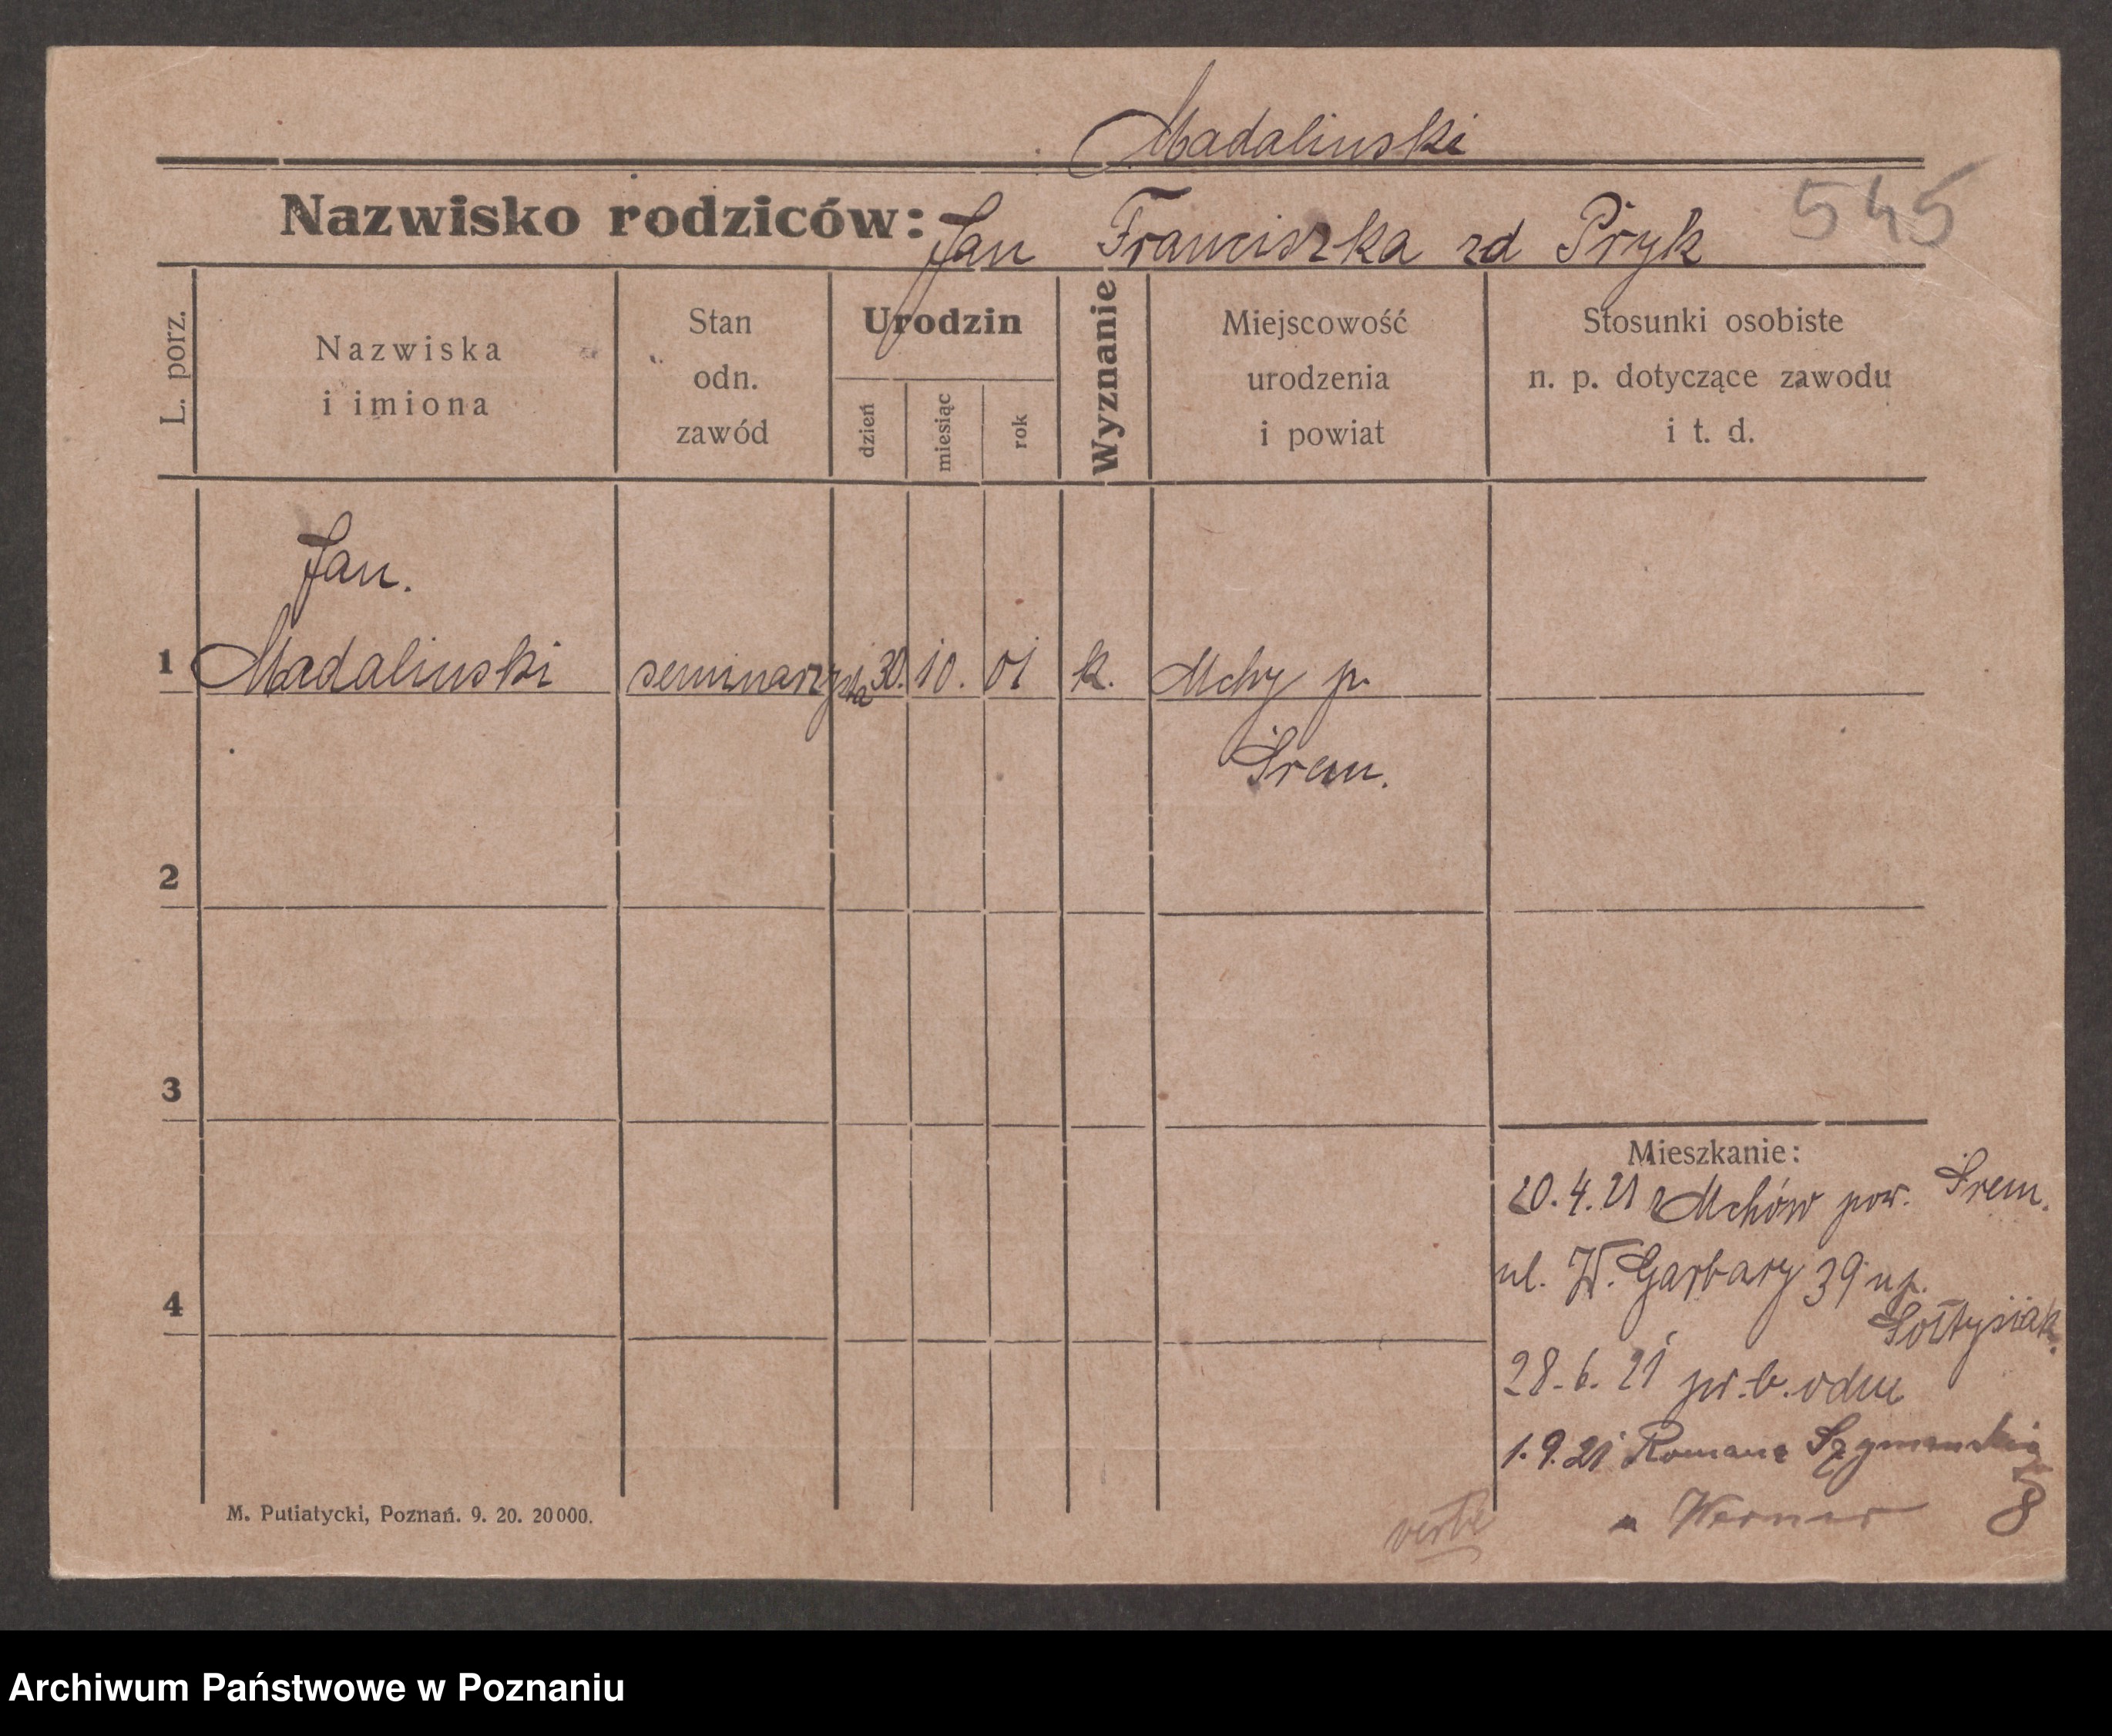 Madalinski
Nazwisko rodziców: Jan Franciszka zd Pryk 545
L. porz.
Nazwiska
i imiona
Stan
odn.
zawód
Urodzin
dzień
miesiąc
rok
Wyznanie
Miejscowość
urodzenia
i powiat
Stosunki osobiste
n. p. dotyczące zawodu
i t. d.
Jan.
1 Madalinski seminarzysta 30. 10. 01 k. Mchy p.
Śrem.
2
3
Mieszkanie:
20.4.21 z Mchów pow. Śrem.
ul. W. Garbary 39 u p.
Sołtysiak.
4
28.6.21 pr. b. odm
1.9.21 Romana Szymanskiego
8
" Werner
verte
M. Putiatycki, Poznań. 9. 20. 20000.
Archiwum Państwowe w Poznaniu